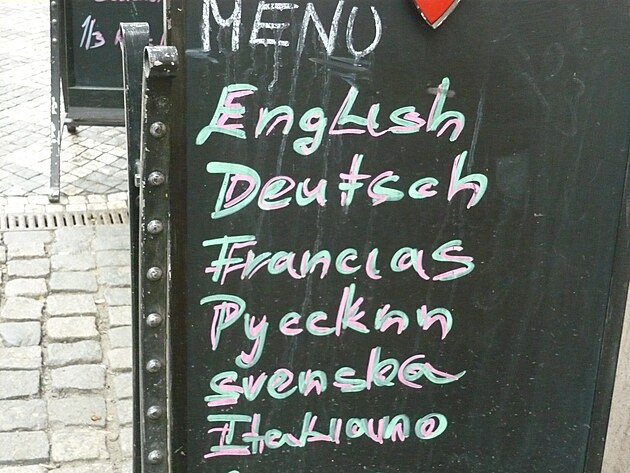 MENU
English
Deutsch
Francias
Русскии
svenska
Italiano
1/3